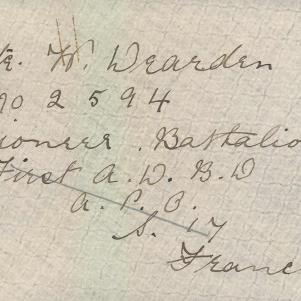 te. W. Wearden
no 2594
ioneer. Battalio
First A. D. B. D
A. P. O.
S. 17
Franc